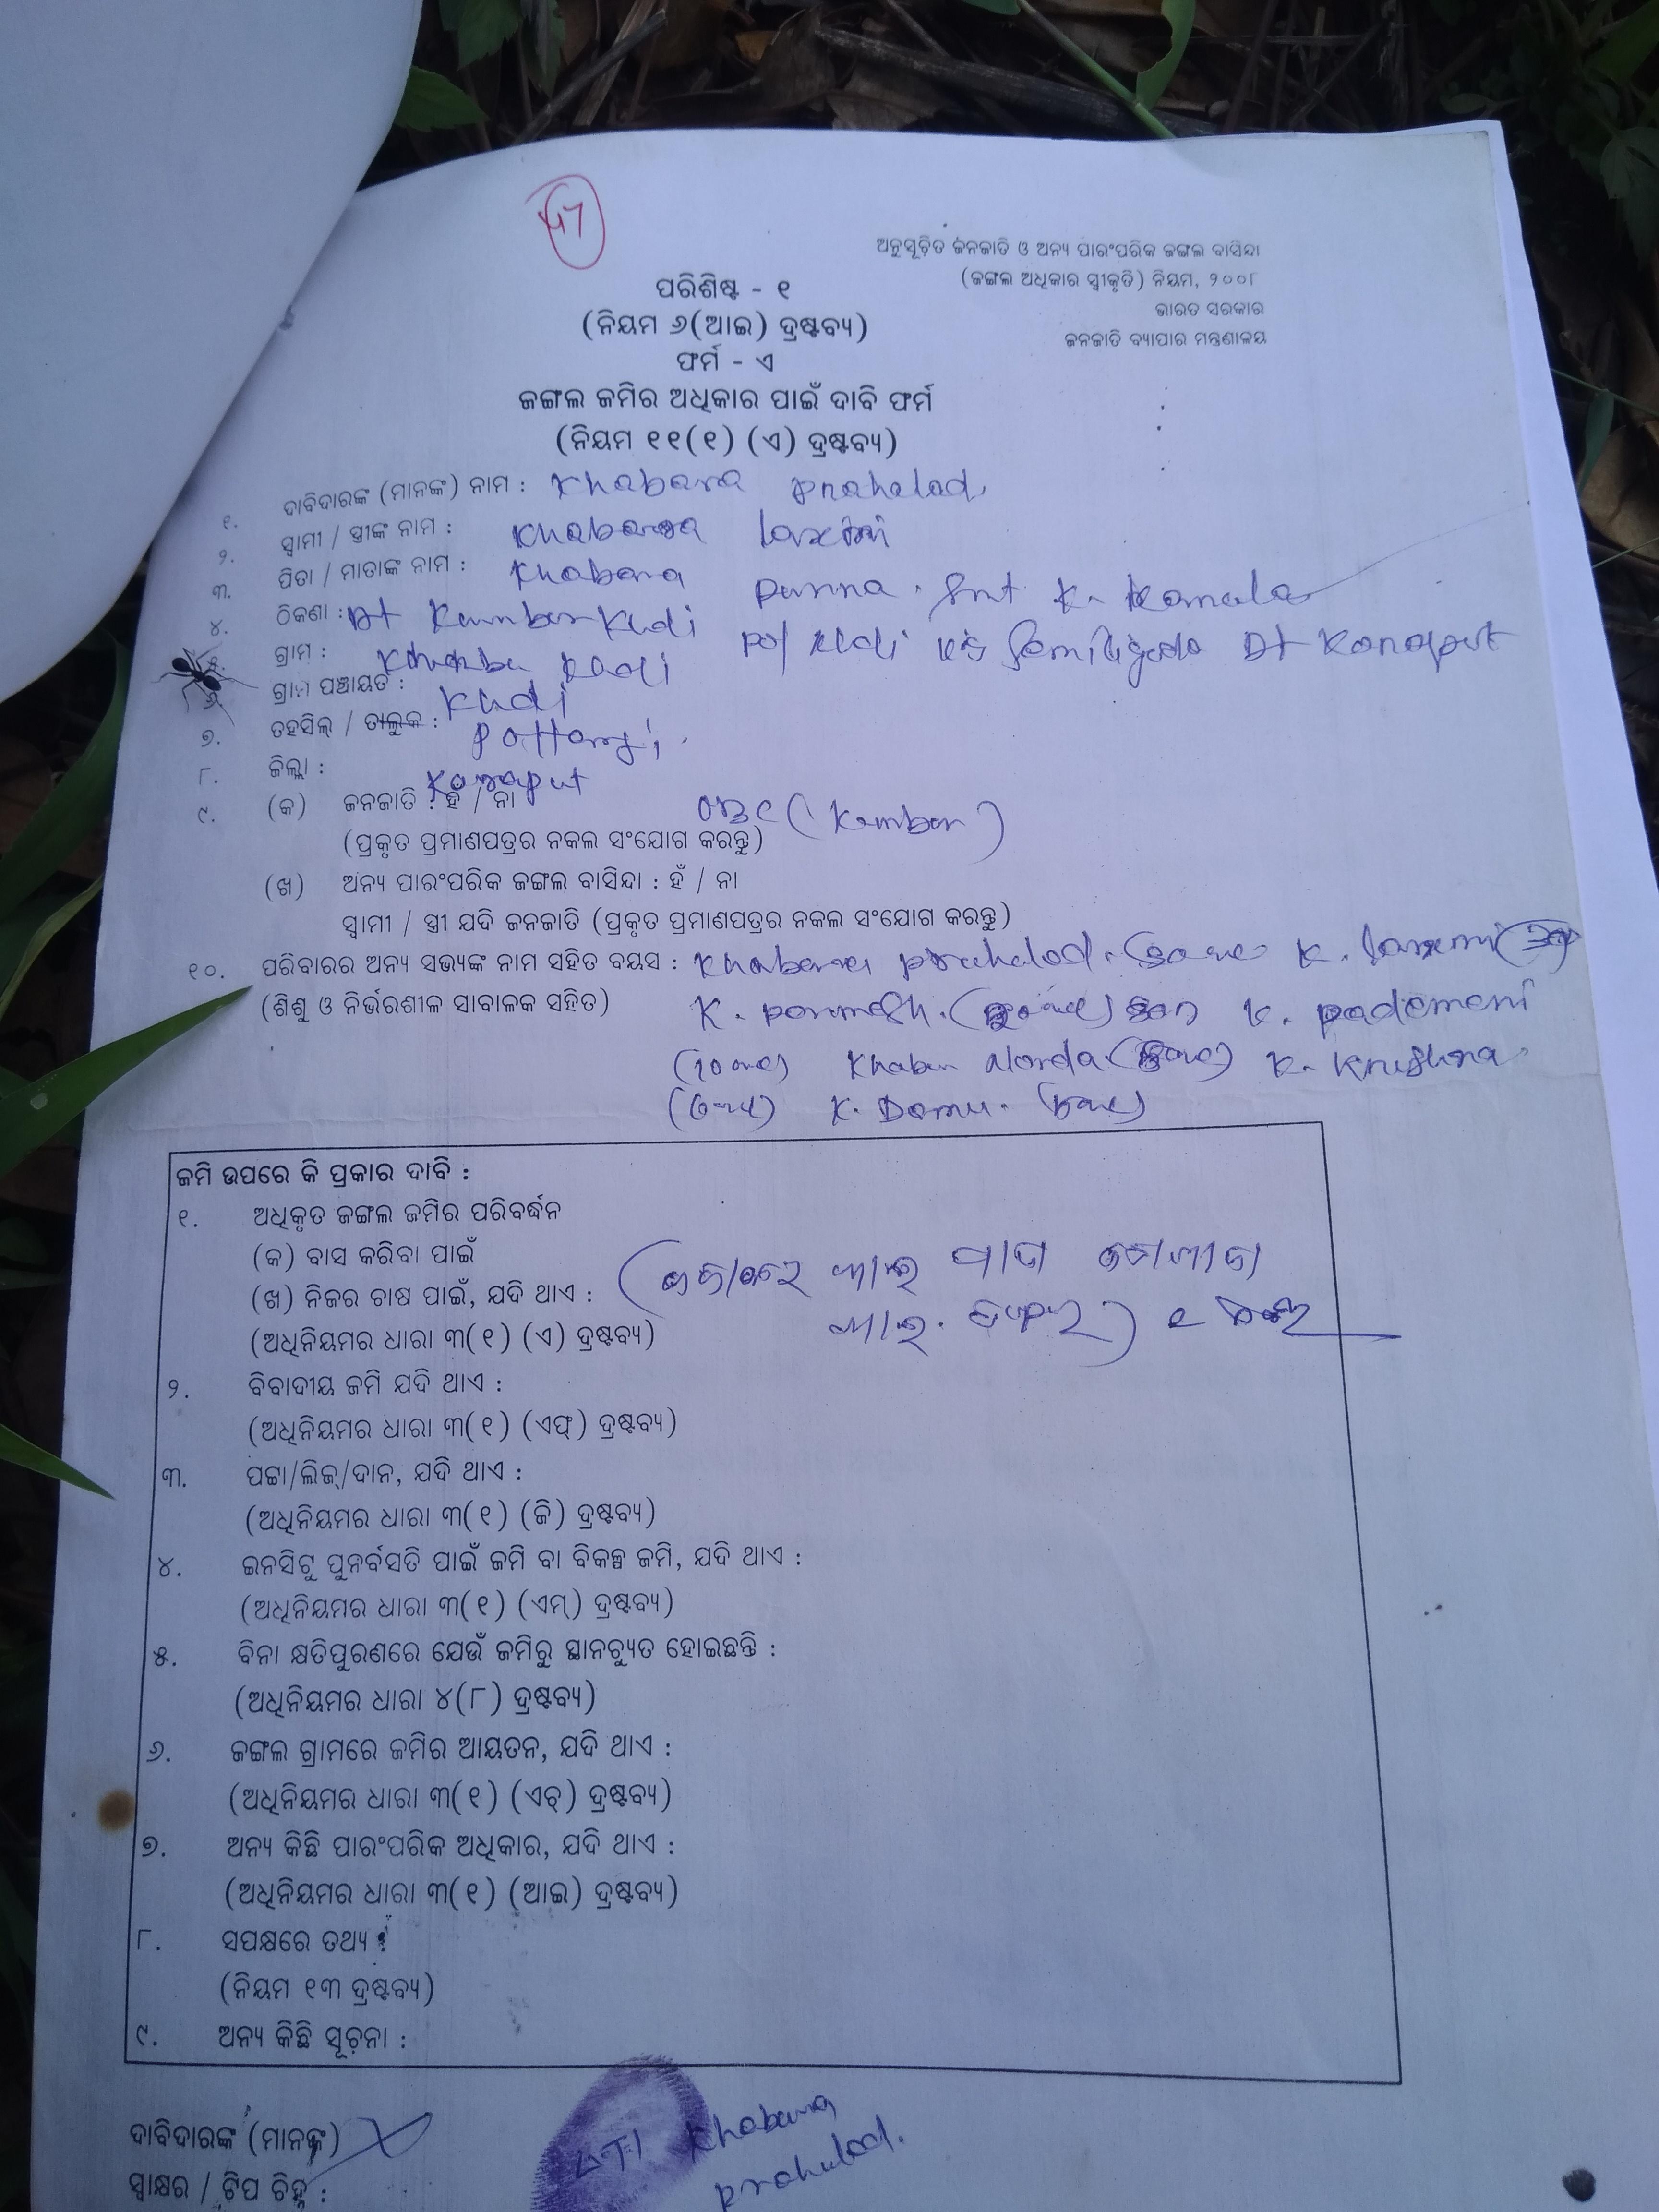 47
ଅନୁସୂଚିତ ଜନଜାତି ଓ ଅନ୍ୟ ପାରଂପରିକ ଜଙ୍ଗଲ ବାସିନ୍ଦା
(ଜଙ୍ଗଲ ଅଧିକାର ସ୍ୱୀକୃତି) ନିୟମ, ୨୦୦୮
ଭାରତ ସରକାର
ଜନଜାତି ବ୍ୟାପାର ମନ୍ତ୍ରଣାଳୟ
ପରିଶିଷ୍ଟ - ୧
(ନିୟମ ୬(ଆଇ) ଦ୍ରଷ୍ଟବ୍ୟ)
ଫର୍ମ - ଏ
ଜଙ୍ଗଲ ଜମିର ଅଧିକାର ପାଇଁ ଦାବି ଫର୍ମ
(ନିୟମ ୧୧(୧) (ଏ) ଦ୍ରଷ୍ଟବ୍ୟ)
୧. ଦାବିଦାରଙ୍କ (ମାନଙ୍କ) ନାମ : Khabara prahalad
୨. ସ୍ୱାମୀ / ସ୍ତ୍ରୀଙ୍କ ନାମ : Khabara laxmi
୩. ପିତା / ମାତାଙ୍କ ନାମ : Khabara purna. Smt K. Kamala
୪. ଠିକଣା : At Kumbar Kudi po/ Kudi Semiliguda Dt Koraput
୫. ଗ୍ରାମ : Kumbar
୬. ଗ୍ରାମ ପଞ୍ଚାୟତ : Kudi
୭. ତହସିଲ୍ / ତାଲୁକ : pottangi
୮. ଜିଲ୍ଲା : Koraput
୯. (କ) ଜନଜାତି : ହଁ / ନା OBC (Kumbar)
(ପ୍ରକୃତ ପ୍ରମାଣପତ୍ରର ନକଲ ସଂଯୋଗ କରନ୍ତୁ)
(ଖ) ଅନ୍ୟ ପାରଂପରିକ ଜଙ୍ଗଲ ବାସିନ୍ଦା : ହଁ / ନା
ସ୍ୱାମୀ / ସ୍ତ୍ରୀ ଯଦି ଜନଜାତି (ପ୍ରକୃତ ପ୍ରମାଣପତ୍ରର ନକଲ ସଂଯୋଗ କରନ୍ତୁ)
୧୦. ପରିବାରର ଅନ୍ୟ ସଭ୍ୟଙ୍କ ନାମ ସହିତ ବୟସ : Khabara prahalad. K. laxmi
(ଶିଶୁ ଓ ନିର୍ଭରଶୀଳ ସାବାଳକ ସହିତ) K. son K. pademeni
Khabar K. Krishna
K. Damu.
ଜମି ଉପରେ କି ପ୍ରକାର ଦାବି :
୧. ଅଧିକୃତ ଜଙ୍ଗଲ ଜମିର ପରିବର୍ଦ୍ଧନ
(କ) ବାସ କରିବା ପାଇଁ
(ଖ) ନିଜର ଚାଷ ପାଇଁ, ଯଦି ଥାଏ :
(ଅଧିନିୟମର ଧାରା ୩(୧) (ଏ) ଦ୍ରଷ୍ଟବ୍ୟ)
୨. ବିବାଦୀୟ ଜମି ଯଦି ଥାଏ :
(ଅଧିନିୟମର ଧାରା ୩(୧) (ଏଫ୍) ଦ୍ରଷ୍ଟବ୍ୟ)
୩. ପଟ୍ଟା/ଲିଜ୍/ଦାନ, ଯଦି ଥାଏ :
(ଅଧିନିୟମର ଧାରା ୩(୧) (ଜି) ଦ୍ରଷ୍ଟବ୍ୟ)
୪. ଇନସିଟୁ ପୁନର୍ବସତି ପାଇଁ ଜମି ବା ବିକଳ୍ପ ଜମି, ଯଦି ଥାଏ :
(ଅଧିନିୟମର ଧାରା ୩(୧) (ଏମ୍) ଦ୍ରଷ୍ଟବ୍ୟ)
୫. ବିନା କ୍ଷତିପୁରଣରେ ଯେଉଁ ଜମିରୁ ସ୍ଥାନଚ୍ୟୁତ ହୋଇଛନ୍ତି :
(ଅଧିନିୟମର ଧାରା ୪(୮) ଦ୍ରଷ୍ଟବ୍ୟ)
୬. ଜଙ୍ଗଲ ଗ୍ରାମରେ ଜମିର ଆୟତନ, ଯଦି ଥାଏ :
(ଅଧିନିୟମର ଧାରା ୩(୧) (ଏଚ୍) ଦ୍ରଷ୍ଟବ୍ୟ)
୭. ଅନ୍ୟ କିଛି ପାରଂପରିକ ଅଧିକାର, ଯଦି ଥାଏ :
(ଅଧିନିୟମର ଧାରା ୩(୧) (ଆଇ) ଦ୍ରଷ୍ଟବ୍ୟ)
୮. ସପକ୍ଷରେ ତଥ୍ୟ :
(ନିୟମ ୧୩ ଦ୍ରଷ୍ଟବ୍ୟ)
୯. ଅନ୍ୟ କିଛି ସୂଚନା :
ଦାବିଦାରଙ୍କ (ମାନଙ୍କ)
ସ୍ୱାକ୍ଷର / ଟିପ ଚିହ୍ନ :
LTI Khabara
prahulad.